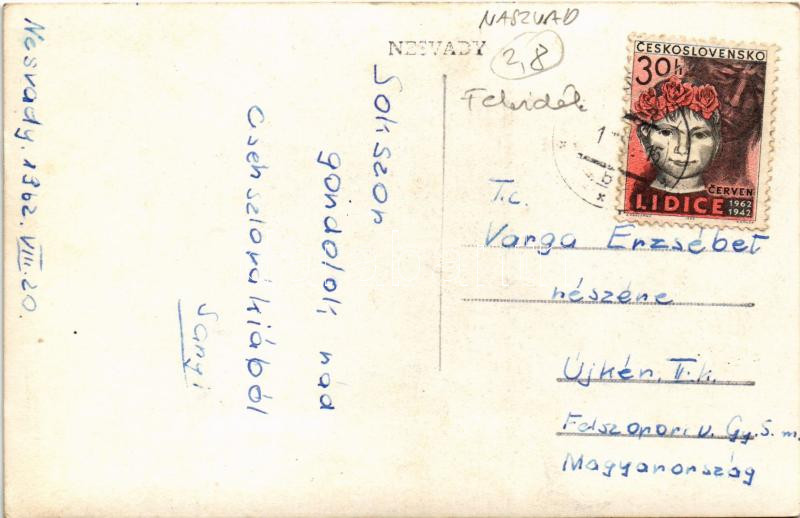 NASZVAD
NESVADY
2,8
Felvidék
ČESKOSLOVENSKO
30h
ČERVEN
LIDICE 1962
1942
Nesvady. 1962. VIII. 20.
Sokszor
gondolok rád
Csehszlovákiából
Sanyi
T.c.
Varga Erzsébet
részére
Újkér, II. k.
Felszopori. u. Gy.S.m.
Magyarország